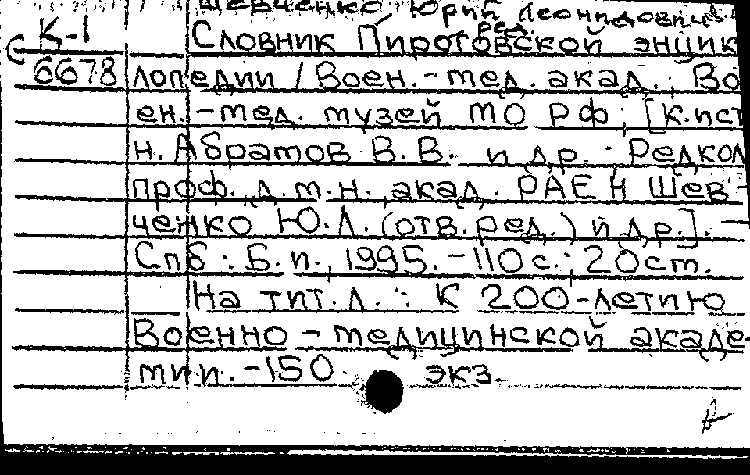 Шевченко Юрий Леонидович
ред.
К-1 Словник Пироговской энцик
6678 лопедии / Воен.-мед. акад., Во
ен.-мед. музей МО РФ; [К.ист
н. Абратов В.В. и др.; Редкол
проф. д.м.н., акад. РАЕН Шев-
ченко Ю.Л. (отв.ред.) и др.]. -
Спб: Б.и., 1995. - 110 с.; 20 см.
На тит.л.: К 200-летию
Военно-медицинской акаде-
мии. - 150 экз.